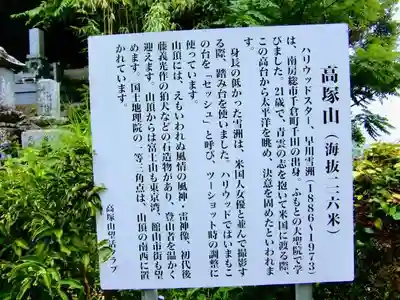 高塚山（海抜二一六米）
ハリウッドスター、早川雪洲（1886～1973）
は、南房総市千倉町千田の出身。ふもとの大聖院で学
びました。21歳で、青雲の志を抱いて米国に渡る際、
この高台から太平洋を眺め、決意を固めたといわれま
す。
身長の低かった雪洲は、米国人女優と並んで撮影す
る際、踏み台を使いました。ハリウッドではいまもこ
の台を「セッシュ」と呼び、ツーショット時の調整に
使っています。
山頂には、えもいわれぬ風情の風神・雷神像、初代後
藤義光作の狛犬などの石造物があり、登山者を温かく
迎えます。山頂からは富士山も東京湾、館山市街も望
めます。国土地理院の一等三角点は、山頂の南西に置
かれています。
高塚山愛活クラブ